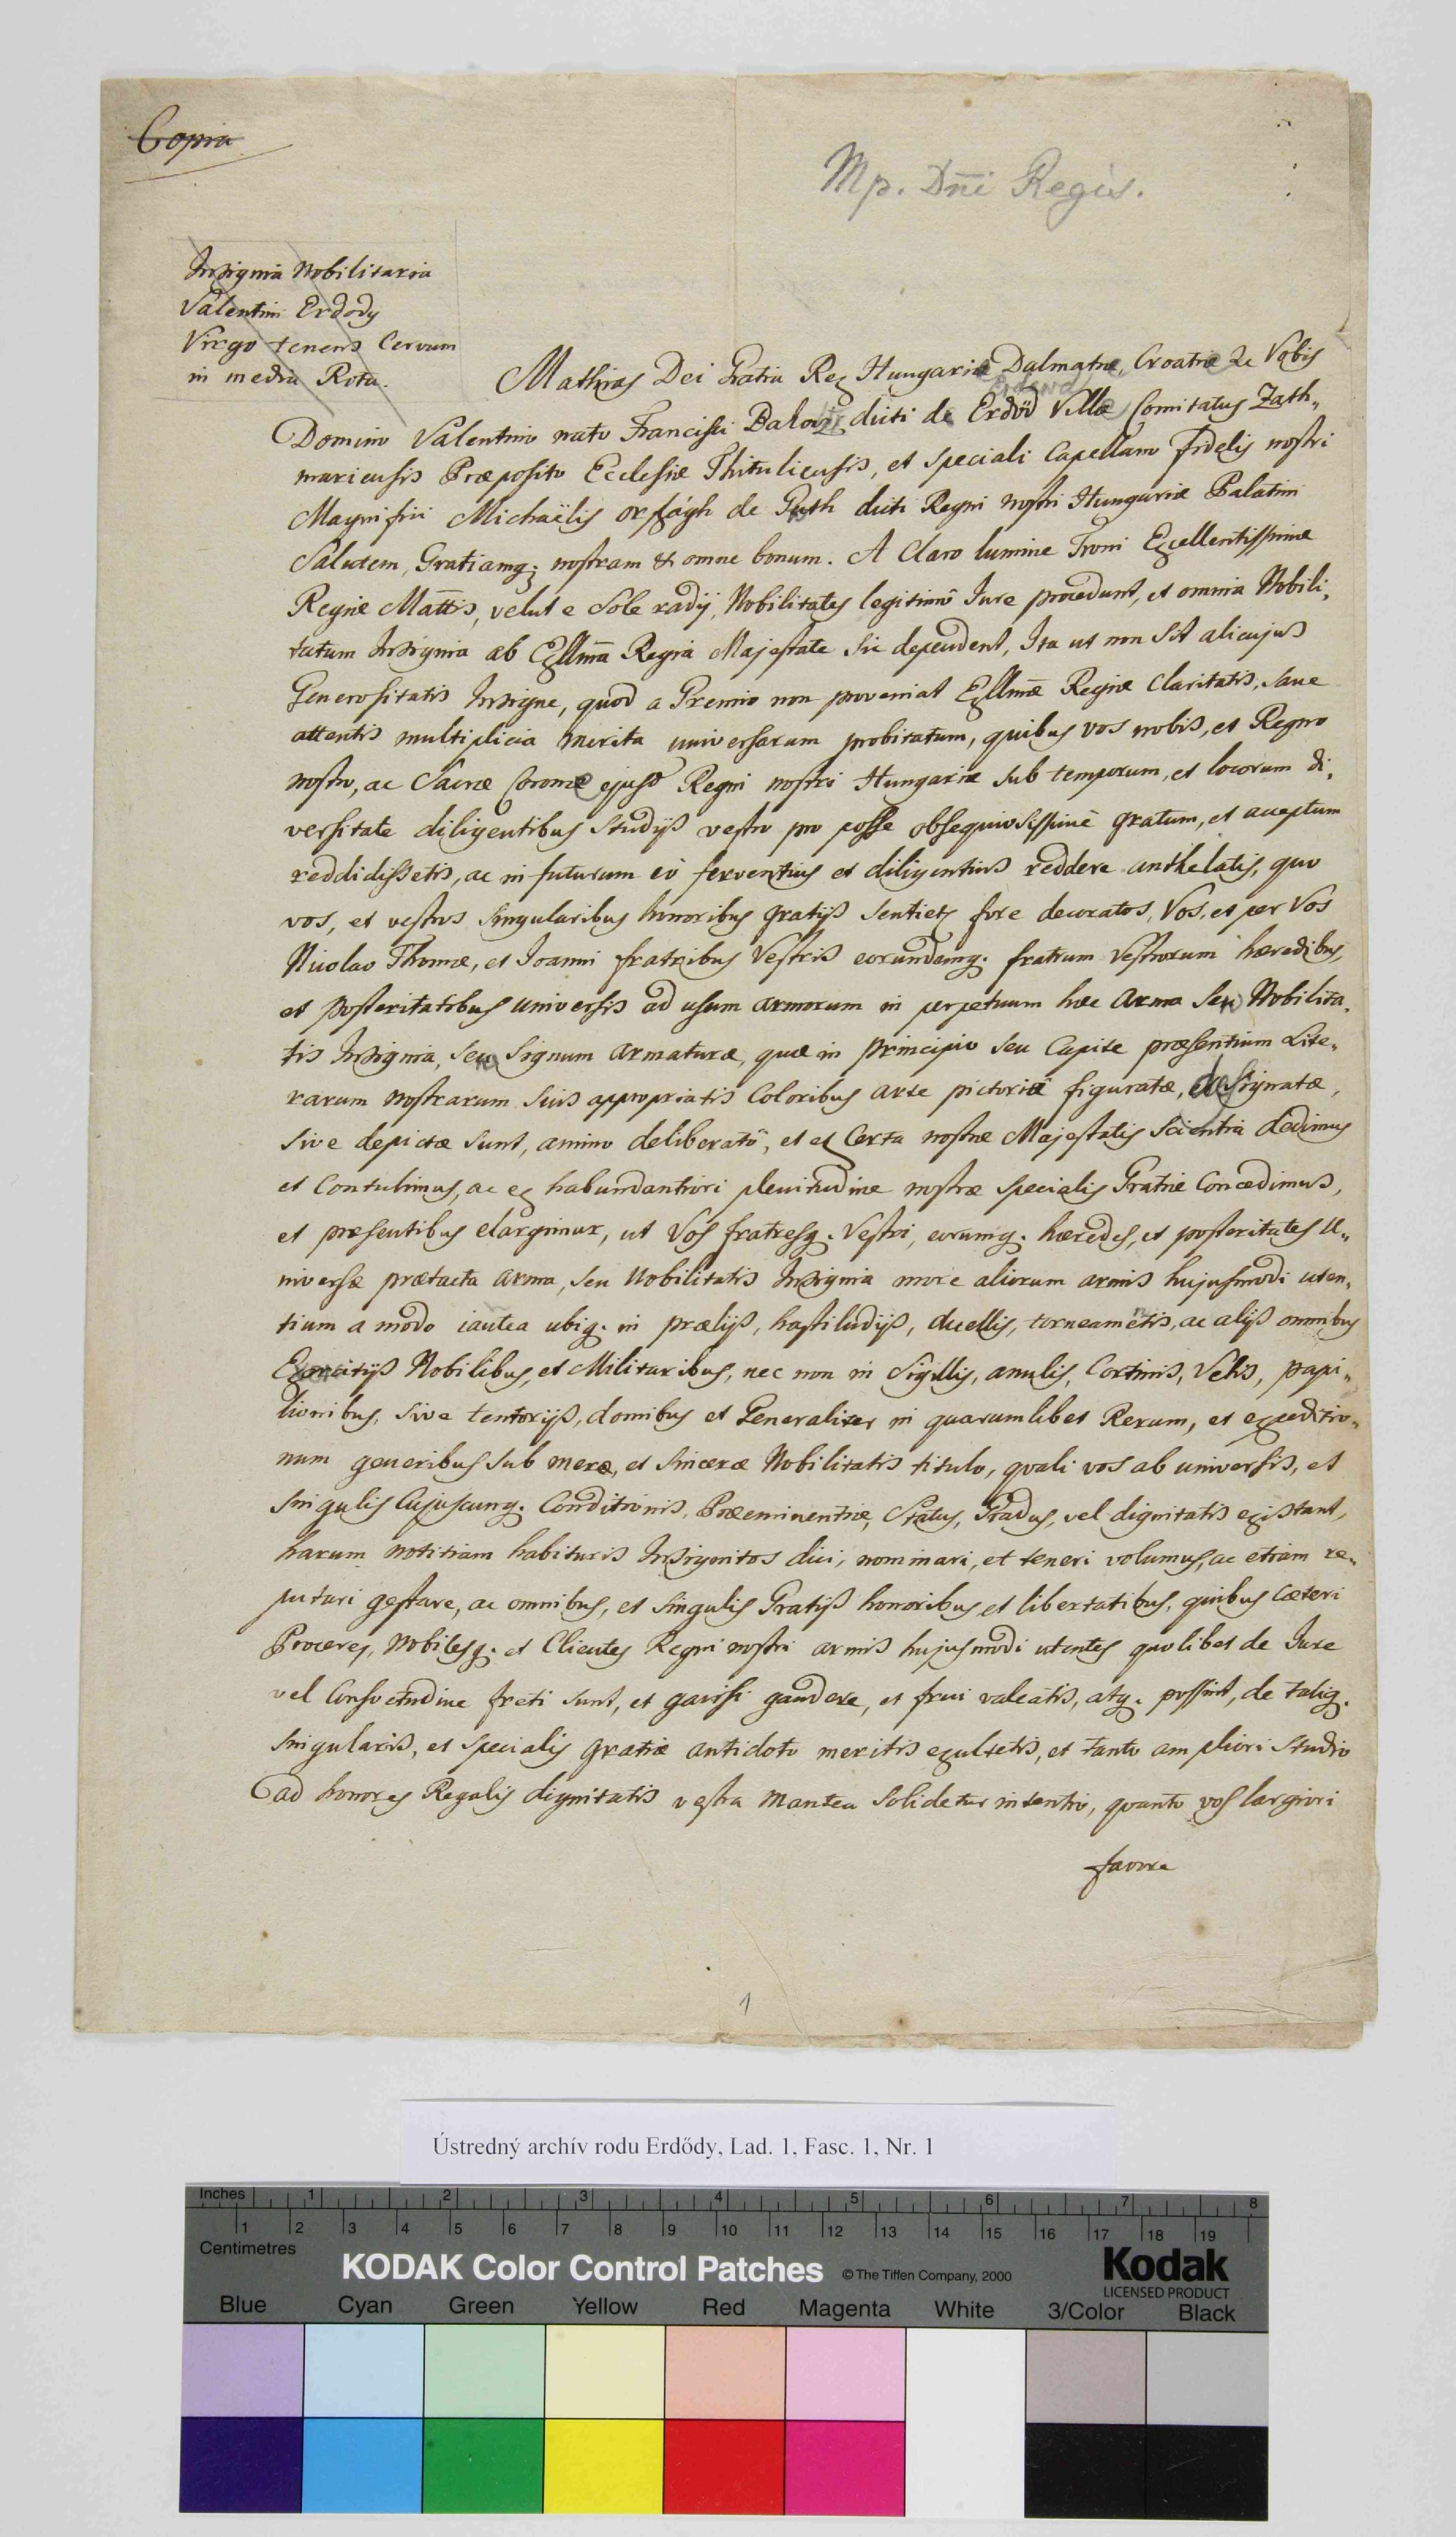 Copia
Mp. Dñi Regis.
Insignia Nobilitaria
Valentini Erdödy
Virgo tenens Cervum
in media Rota.
Mathias Dei Gratia Rex Hungariæ Dalmatiæ, Croatiæ &c Vobis
Domino Valentino nato Francisci Bakocz dicti de Erdöd Villæ Comitatus Zath„
mariensis Præposito Ecclesiæ Thituliensis, et speciali Capellano fidelis nostri
Magnifici Michaëlis orságh de Guth dicti Regni nostri Hungariæ Palatini
Salutem, Gratiamq; nostram & omne bonum. A Claro lumine Troni Excellentissimæ
Regiæ Mattis, velut e Sole radij, Nobilitates legitimô Jure procedunt, et omnia Nobili„
tatum Insignia ab Exllmã Regia Majestate sic dependent, Ita ut non sit alicujus
Generositatis Insigne, quod a Gremio non proveniat Exllmæ Regiæ Claritatis, sane
attentis multiplicia merita universarum probitatum, quibus vos nobis, et Regno
nostro, ac Sacræ Coronæ ejusd Regni nostri Hungariæ sub temporum, et locorum di„
versitate diligentibus studijs vestro pro posse obsequiosissimè gratum, et acceptum
reddidissetis, ac in futurum eò ferventius et diligentius reddere anthelatis, quo
vos, et vestros singularibus honoribus gratijs sentietis fore decoratos, Vos, et per Vos
Nicolao Thomæ, et Joanni fratribus Vestris eorundemq. fratrum Vestrorum hæredibus,
et posteritatibus universis ad usum armorum in perpetuum hæc Arma seu Nobilita„
tis Insignia, seu Signum armaturæ, quæ in principio seu Capite præsentium Lite„
rarum nostrarum suis appropriatis Coloribus arte pictoriâ figuratæ, designatæ,
sive depictæ sunt, animo deliberatô, et ex Certa nostræ Majestatis scientia dedimus
et Contulimus, ac ex habundantiori plenitudine nostræ specialis Gratiæ Concedimus,
et præsentibus elargimur, ut Vos fratresq. Vestri, eorumq. hæredes, et posteritates u„
niversæ prætacta arma, seu Nobilitatis Insignia more aliorum armis hujusmodi uten„
tium a modo in antea ubiq. in prælijs, hastiludijs, duellis, torneamentis, ac alijs omnibus
Exercitijs Nobilibus, et Militaribus, nec non in Sigillis, anulis, Cortinis, Velis, papi„
lionibus, sive tentorijs, domibus et Generaliter in quarumlibet Rerum, et expeditio„
num generibus sub meræ, et sinceræ Nobilitatis titulo, quali vos ab universis, et
singulis Cujuscunq. Conditionis, Præeminentiæ, Status, Gradus, vel dignitatis existant,
harum notitiam habituris Insignitos dici, nominari, et teneri volumus, ac etiam re„
putari gestare, ac omnibus, et singulis Gratijs honoribus et libertatibus, quibus Cæteri
Proceres, Nobilesq. et Clientes Regni nostri armis hujusmodi utentes quolibet de Jure
vel Consvetudine freti sunt, et gavisi gaudere, et frui valeatis, atq. possint, de taliq.
singularis, et specialis gratiæ antidoto meritis exultetis, et tanto ampliori studio
ad honores Regalis dignitatis vestra mantea solidetur intentio, quanto vos largiori
favore
1
Ústredný archív rodu Erdődy, Lad. 1, Fasc. 1, Nr. 1
Inches 1 2 3 4 5 6 7 8
1 2 3 4 5 6 7 8 9 10 11 12 13 14 15 16 17 18 19
Centimetres
KODAK Color Control Patches © The Tiffen Company, 2000 Kodak
LICENSED PRODUCT
Blue Cyan Green Yellow Red Magenta White 3/Color Black